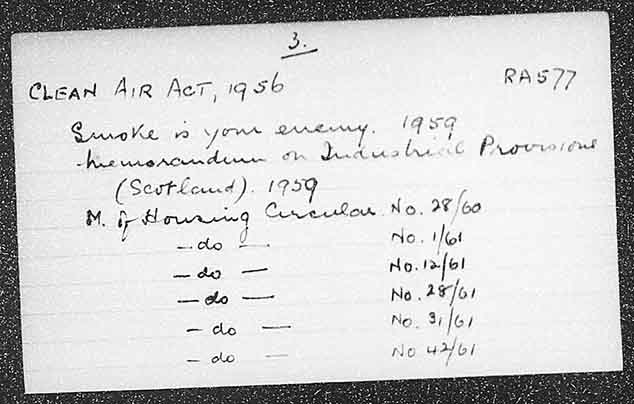 3.
CLEAN AIR ACT, 1956 RA577
Smoke is your enemy. 1959
Memorandum on Industrial Provisions
(Scotland). 1959
M. of Housing Circular No. 28/60
— do — No. 1/61
— do — No. 12/61
— do — No. 28/61
— do — No. 31/61
— do — No 42/61